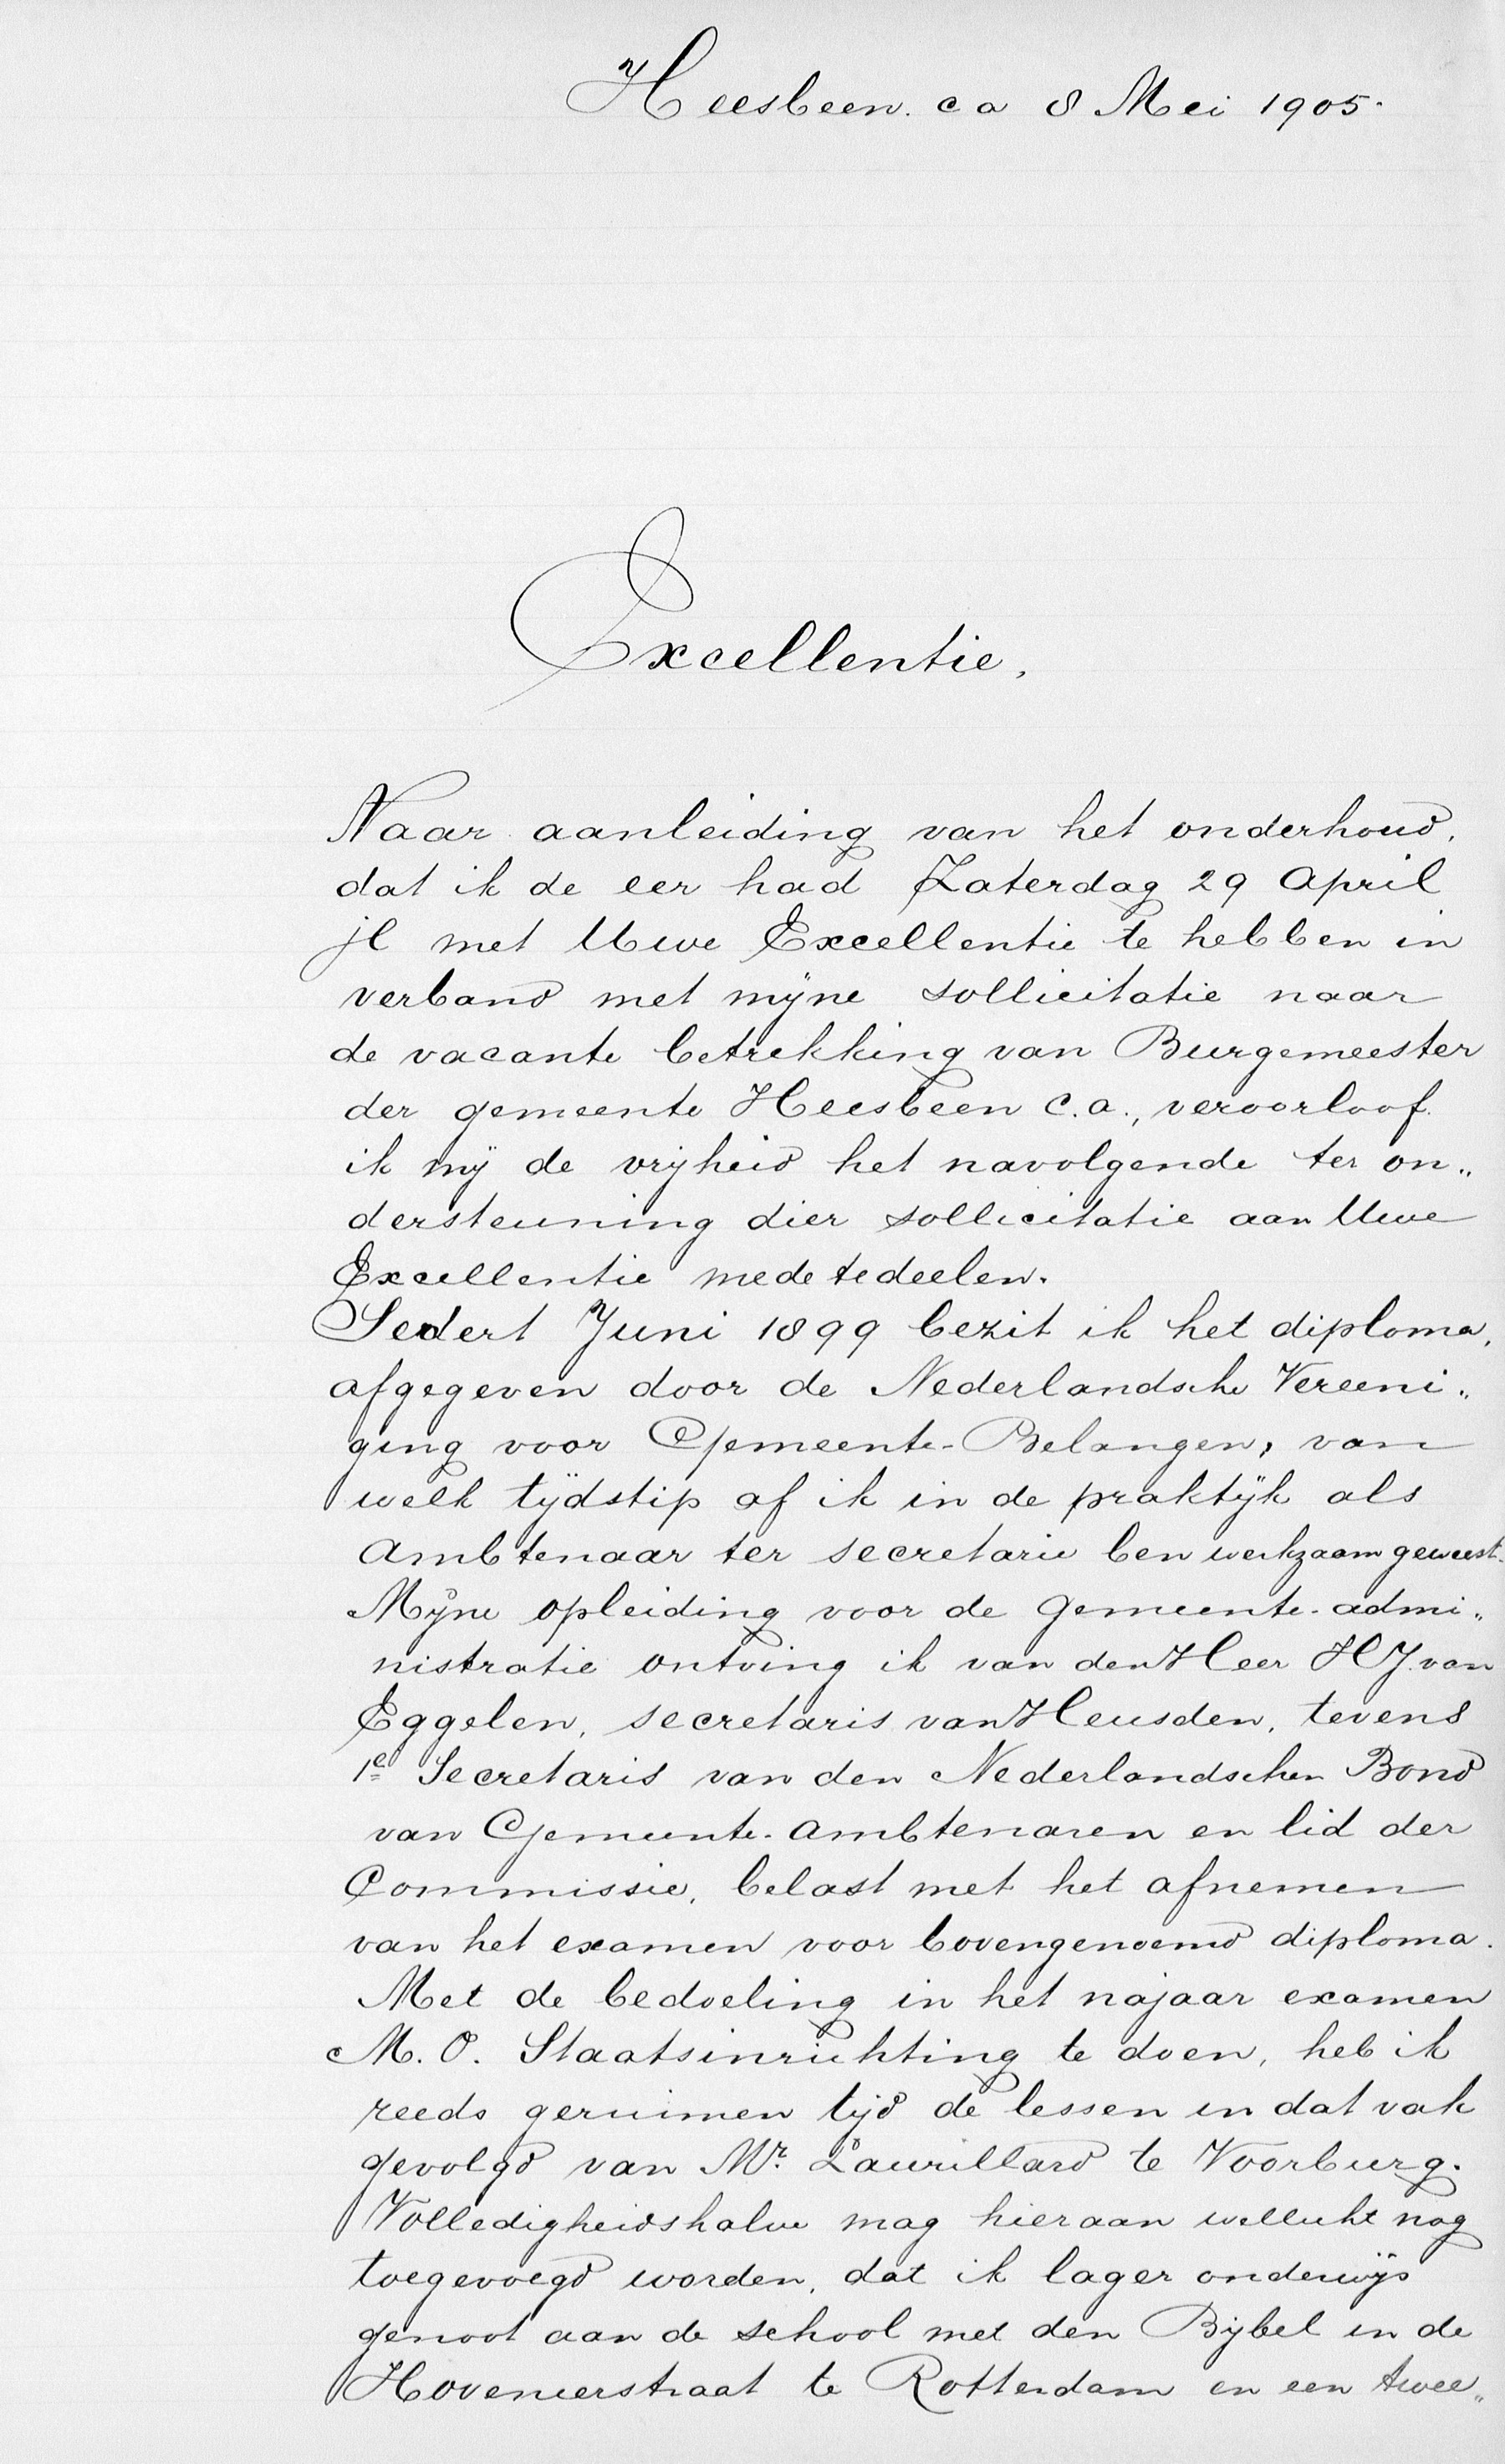 Heesbeen. ca 8 Mei 1905.
Excellentie,
Naar aanleiding van het onderhoud,
dat ik de eer had Zaterdag 29 April
jl met Uwe Excellentie te hebben in
verband met mijne sollicitatie naar
de vacante betrekking van Burgemeester
der gemeente Heesbeen c.a., veroorloof
ik mij de vrijheid het navolgende ter on„
dersteuning dier sollicitatie aan Uwe
Excellentie mede te deelen.
Sedert Juni 1899 bezit ik het diploma,
afgegeven door de Nederlandsche Vereeni„
ging voor Gemeente-Belangen, van
welk tijdstip af ik in de praktijk als
ambtenaar ter secretarie ben werkzaam geweest.
Mijne opleiding voor de gemeente-admi„
nistratie ontving ik van den Heer H J. van
Eggelen, secretaris van Heusden, tevens
1e Secretaris van den Nederlandschen Bond
van Gemeente-ambtenaren en lid der
Commissie, belast met het afnemen
van het examen voor bovengenoemd diploma.
Met de bedoeling in het najaar examen
M. O. Staatsinrichting te doen, heb ik
reeds geruimen tijd de lessen in dat vak
gevolgd van Mr. Laurillard te Voorburg.
Volledigheidshalve mag hieraan wellicht nog
toegevoegd worden, dat ik lager onderwijs
genoot aan de school met den Bijbel in de
Hovenierstraat te Rotterdam en een twee„